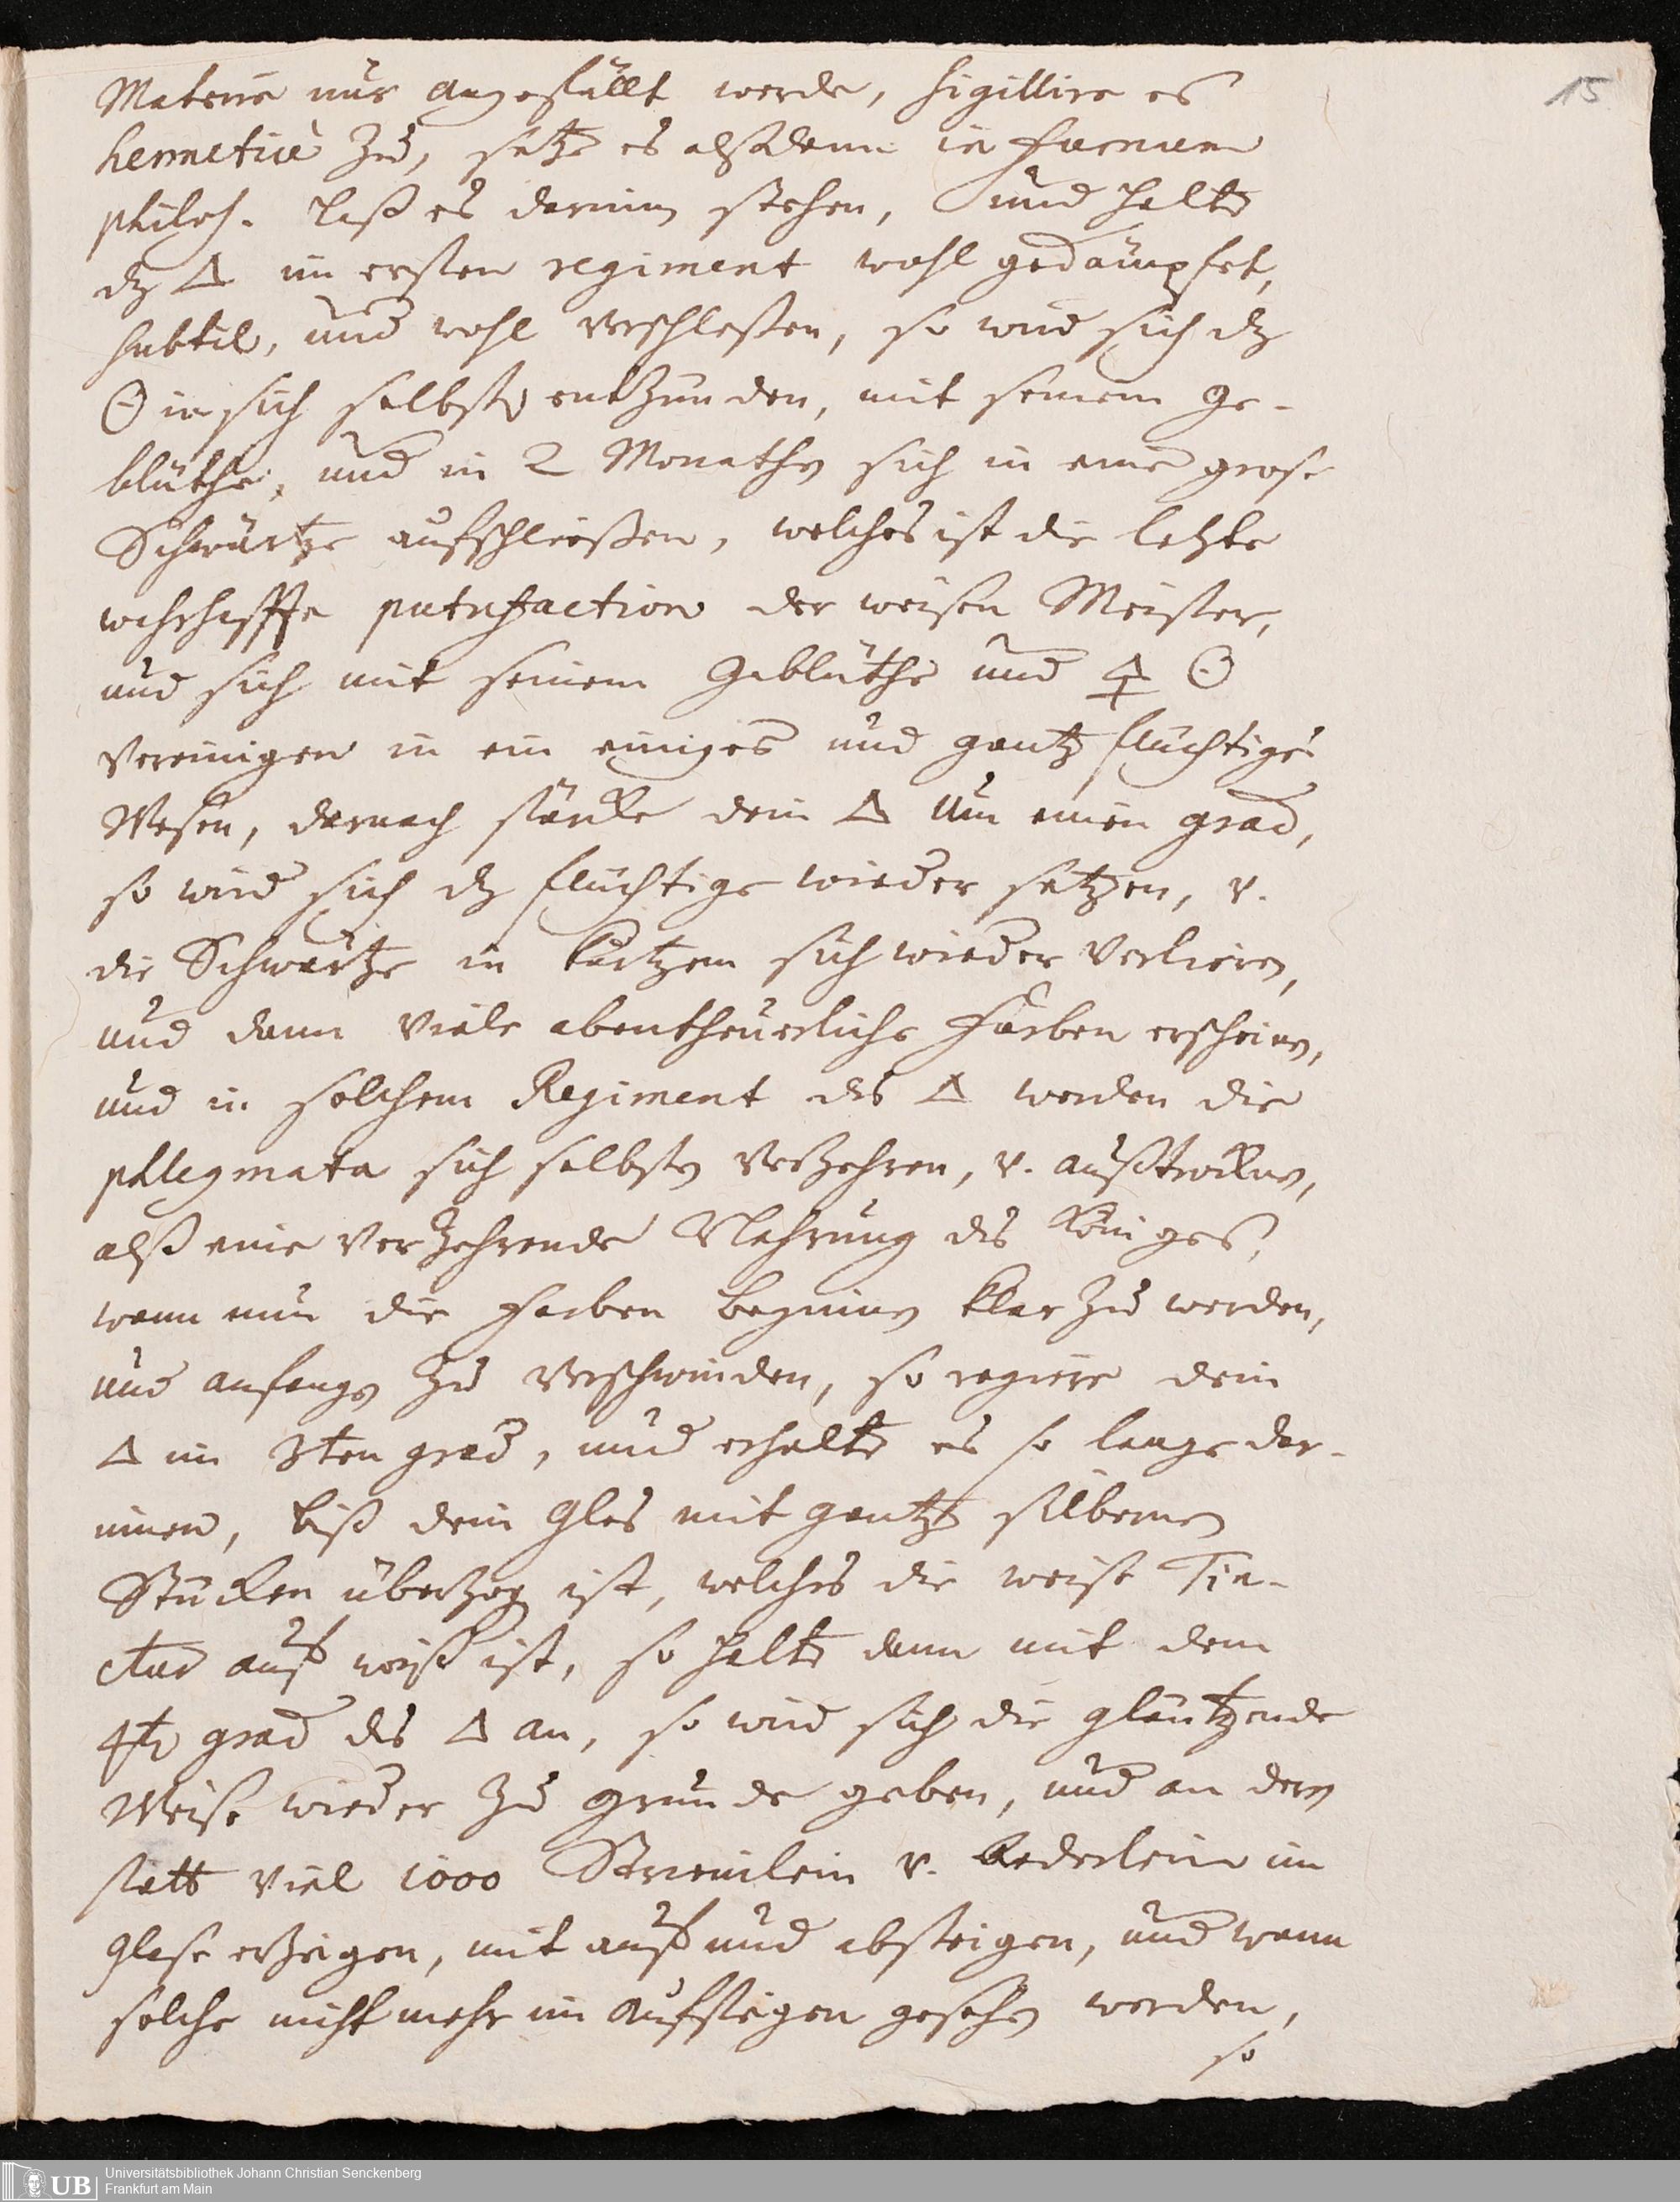 15
Materie nur angefüllt werde, sigillire es
hermeticè zu, setze es alßdann in furnum
philos. laß es darinn stehen, und halte
dz 🜂 im ersten regiment wohl gedämpfet,
subtil, und wohl verschloßen, so wird sich dz
☉ in sich selbst entzünden, mit seinem Ge-
blüthe, und in 2 Monathen sich in eine grose
Schwärtze aufschließen, welches ist die letzte
wahrhaffte putrefaction der weisen Meister,
und sich mit seinem Geblüthe und 🜍 ☉
vereinigen in ein einiges und gantz flüchtiges
Wesen, darnach stärcke dein 🜂 um einen grad,
so wird sich dz flüchtige wieder setzen, v.
die Schwärtze in kurtzem sich wieder verlieren,
und dann viele abentheuerliche Farben erscheinen,
und in solchem Regiment des 🜂 werden die
phlegmata sich selbsten verzehren, v. außtrocknen,
alß eine verzehrende Nahrung des Königes,
wann nun die Farben beginnen klar zu werden,
und anfangen zu verschwinden, so regiere dein
🜂 im 3ten grad, und erhalte es so lange dar-
innen, biß dein Glas mit gantz silbernen
Stücken überzogen ist, welches die weise Tin-
ctur auf weiß ist, so halte dann mit dem
4ten grad des 🜂 an, so wird sich die gläntzende
Weise wieder zu grunde geben, und an deren
statt viel 1000 Stremlein v. Aederlein im
Glase erzeigen, mit auf und absteigen, und wann
solche nicht mehr im Aufsteigen gesehen werden,
so
UB
Universitätsbibliothek Johann Christian Senckenberg
Frankfurt am Main